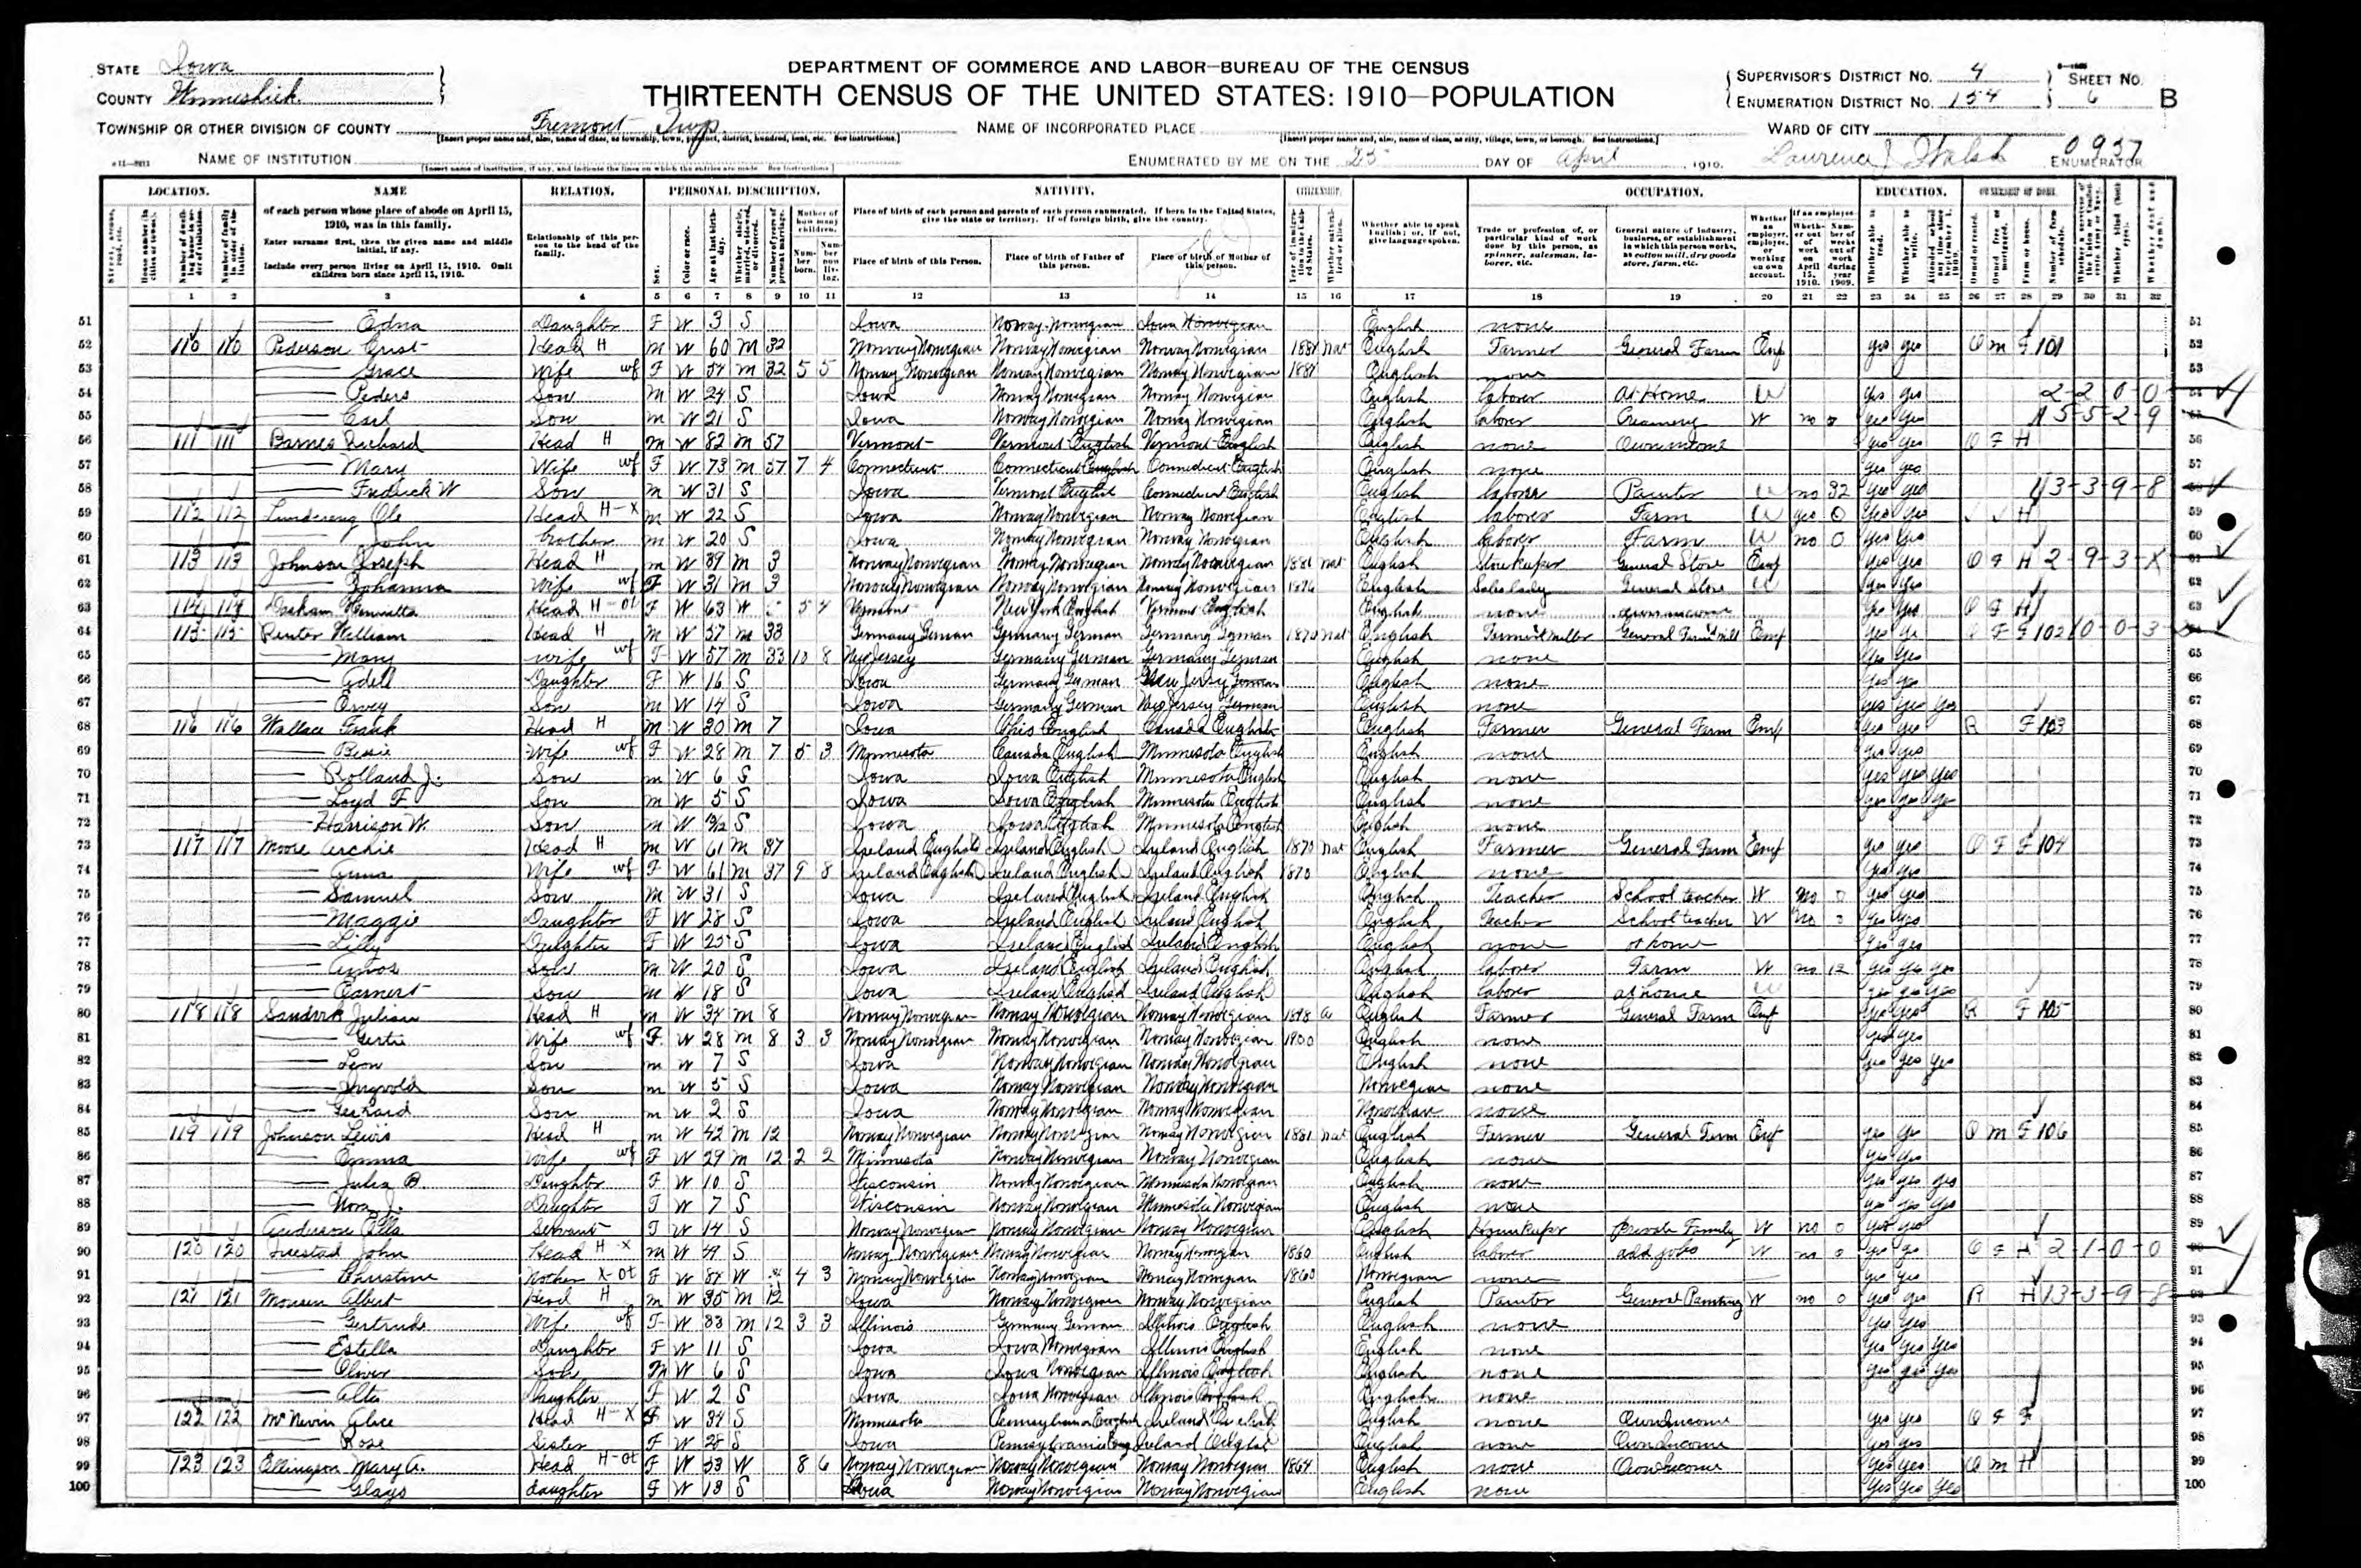 DEPARTMENT OF COMMERCE AND LABOR—BUREAU OF THE CENSUS
THIRTEENTH CENSUS OF THE UNITED STATES: 1910—POPULATION
STATE Iowa
COUNTY Winneshiek
TOWNSHIP OR OTHER DIVISION OF COUNTY Fremont Twp.
[Insert proper name and, also, name of class, as township, town, precinct, district, hundred, beat, etc. See instructions.]
NAME OF INCORPORATED PLACE
[Insert proper name and, also, name of class, as city, village, town, or borough. See instructions.]
SUPERVISOR'S DISTRICT NO. 4
ENUMERATION DISTRICT NO. 154
SHEET NO. 6 B
WARD OF CITY
0937
NAME OF INSTITUTION
[Insert name of institution, if any, and indicate the lines on which the entries are made. See instructions.]
ENUMERATED BY ME ON THE 25 DAY OF April, 1910. Laurence J. Walsh ENUMERATOR
LOCATION. NAME RELATION. PERSONAL DESCRIPTION. NATIVITY. CITIZENSHIP. OCCUPATION. EDUCATION. OWNERSHIP OF HOME.
of each person whose place of abode on April 15, 1910, was in this family.
Enter surname first, then the given name and middle initial, if any.
Include every person living on April 15, 1910. Omit children born since April 15, 1910.
Relationship of this person to the head of the family.
Place of birth of each person and parents of each person enumerated. If born in the United States, give the state or territory. If of foreign birth, give the country.
Place of birth of this Person. Place of birth of Father of this person. Place of birth of Mother of this person.
Whether able to speak English; or, if not, give language spoken.
Trade or profession of, or particular kind of work done by this person, as spinner, salesman, laborer, etc.
General nature of industry, business, or establishment in which this person works, as cotton mill, dry goods store, farm, etc.
1 2 3 4 5 6 7 8 9 10 11 12 13 14 15 16 17 18 19 20 21 22 23 24 25 26 27 28 29 30 31 32
51 Edna Daughter F W 3 S Iowa Norway-Norwegian Iowa Norwegian English none
52 110 110 Head H m W 60 m 32 Norway Norwegian Norway Norwegian Norway Norwegian 1881 Nat English Farmer General Farm Emp yes yes O m F 101
53 Grace Wife F W 54 m 32 5 5 Norway Norwegian Norway Norwegian Norway Norwegian 1881 English none
54 Son m W 24 S Iowa Norway Norwegian Norway Norwegian English laborer At Home W yes yes 2-2-0-0
55 Carl Son m W 21 S Iowa Norway Norwegian Norway Norwegian English laborer Creamery W no 0 yes yes 5-5-2-9
56 111 111 Barnes Richard Head H m W 82 m 57 Vermont Vermont English Vermont English English none Own income yes yes O F H
57 Mary Wife F W 73 m 57 7 4 Connecticut Connecticut English Connecticut English English none yes yes
58 Fredrick W Son m W 31 S Iowa Vermont English Connecticut English English laborer Painter W no 32 yes yes 3-3-9-8
59 112 112 Ole Head H-X m W 22 S Iowa Norway Norwegian Norway Norwegian English laborer Farm W yes 0 yes yes H
60 John brother m W 20 S Iowa Norway Norwegian Norway Norwegian English laborer Farm W no 0 yes yes
61 113 113 Johnson Joseph Head H m W 39 m 3 Norway Norwegian Norway Norwegian Norway Norwegian 1881 nat English Storekeeper General Store Emp yes yes O F H 2-9-3-X
62 Johanna Wife F W 31 m 3 Norway Norwegian Norway Norwegian Norway Norwegian 1896 English Saleslady General Store W yes yes
63 114 114 Henrietta Head H-ot F W 63 W 5 4 Vermont New York English Vermont English English none own income yes yes O F H
64 115 115 William Head H m W 57 m 33 Germany German Germany German Germany German 1870 Nat English Farmer & Miller General Farm & Mill Emp yes yes O F F 102 0-0-3
65 Mary Wife F W 57 m 33 10 8 New Jersey Germany German Germany German English none yes yes
66 Adell Daughter F W 16 S Iowa Germany German New Jersey German English none yes yes
67 Ervey Son m W 14 S Iowa Germany German New Jersey German English none yes yes yes
68 116 116 Wallace Frank Head H m W 30 m 7 Iowa Ohio English Canada English English Farmer General Farm Emp yes yes R F 103
69 Bessie Wife F W 28 m 7 5 3 Minnesota Canada English Minnesota English English none yes yes
70 Rolland J. Son m W 6 S Iowa Iowa English Minnesota English English none yes yes yes
71 Loyd F Son m W 5 S Iowa Iowa English Minnesota English English none yes yes yes
72 Harrison W. Son m W S Iowa Iowa English Minnesota English English none
73 117 117 Moore Archie Head H m W 61 m 37 Ireland English Ireland English Ireland English 1870 Nat English Farmer General Farm Emp yes yes O F F 104
74 Anna Wife F W 61 m 37 9 8 Ireland English Ireland English Ireland English 1870 English none yes yes
75 Samuel Son m W 31 S Iowa Ireland English Ireland English English Teacher School teacher W no 0 yes yes
76 Maggie Daughter F W 28 S Iowa Ireland English Ireland English English Teacher School teacher W no 0 yes yes
77 Lilly Daughter F W 25 S Iowa Ireland English Ireland English English none at home yes yes
78 Amos Son m W 20 S Iowa Ireland English Ireland English English laborer Farm W no 12 yes yes yes
79 Earnest Son m W 18 S Iowa Ireland English Ireland English English laborer at house W yes yes yes
80 118 118 Sandvik Julian Head H m W 34 m 8 Norway Norwegian Norway Norwegian Norway Norwegian 1898 a English Farmer General Farm Emp yes yes R F 105
81 Gertie Wife F W 28 m 8 3 3 Norway Norwegian Norway Norwegian Norway Norwegian 1900 English none yes yes
82 Leon Son m W 7 S Iowa Norway Norwegian Norway Norwegian English none yes yes yes
83 Ingvold Son m W 5 S Iowa Norway Norwegian Norway Norwegian Norwegian none
84 Gerhard Son m W 2 S Iowa Norway Norwegian Norway Norwegian Norwegian none
85 119 119 Johnson Lewis Head H m W 42 m 12 Norway Norwegian Norway Norwegian Norway Norwegian 1881 Nat English Farmer General Farm Emp yes yes O m F 106
86 Emma Wife F W 29 m 12 2 2 Minnesota Norway Norwegian Norway Norwegian English none yes yes
87 Julia B. Daughter F W 10 S Wisconsin Norway Norwegian Minnesota Norwegian English none yes yes yes
88 Nora J. Daughter F W 7 S Wisconsin Norway Norwegian Minnesota Norwegian English none yes yes yes
89 Anderson Ella Servant F W 14 S Norway Norwegian Norway Norwegian Norway Norwegian English Housekeeper Private Family W no 0 yes yes
90 120 120 John Head H-X m W 49 S Norway Norwegian Norway Norwegian Norway Norwegian 1860 English laborer odd jobs W no 0 yes yes O F H 2-1-0-0
91 Christine Mother X-ot F W 84 W 4 3 Norway Norwegian Norway Norwegian Norway Norwegian 1860 Norwegian none yes yes
92 121 121 Monsen Albert Head H m W 35 m 12 Iowa Norway Norwegian Norway Norwegian English Painter General Painting W no 0 yes yes R H 3-3-9-8
93 Gertrude Wife F W 33 m 12 3 3 Illinois Germany German Illinois English English none yes yes
94 Estella Daughter F W 11 S Iowa Iowa Norwegian Illinois English English none yes yes yes
95 Oliver Son m W 6 S Iowa Iowa Norwegian Illinois English English none yes yes yes
96 Alta Daughter F W 2 S Iowa Iowa Norwegian Illinois English English none
97 122 122 McNevin Alice Head H-X F W 34 S Minnesota Pennsylvania English Ireland English English none Own Income yes yes O F F
98 Rose Sister F W 28 S Iowa Pennsylvania Eng Ireland English English none Own Income yes yes
99 123 123 Ellingson Mary A. Head H-ot F W 53 W 8 6 Norway Norwegian Norway Norwegian Norway Norwegian 1864 English none Own Income yes yes O m H
100 Glays daughter F W 18 S Iowa Norway Norwegian Norway Norwegian English none yes yes yes